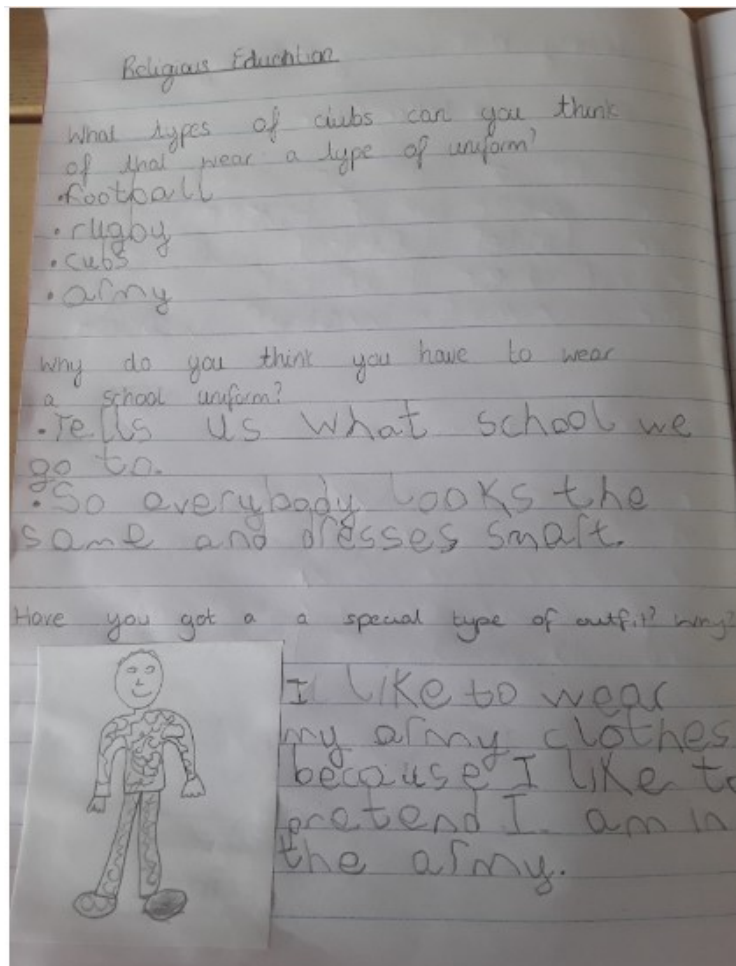 Religious Education
What types of clubs can you think
of that wear a type of uniform?
• football
• rugby
• cubs
• army
Why do you think you have to wear
a school uniform?
• Tells us what school we
go to.
• So everybody looks the
same and dresses smart.
Have you got a a special type of outfit? Why?
I like to wear
my army clothes
because I like to
pretend I am in
the army.